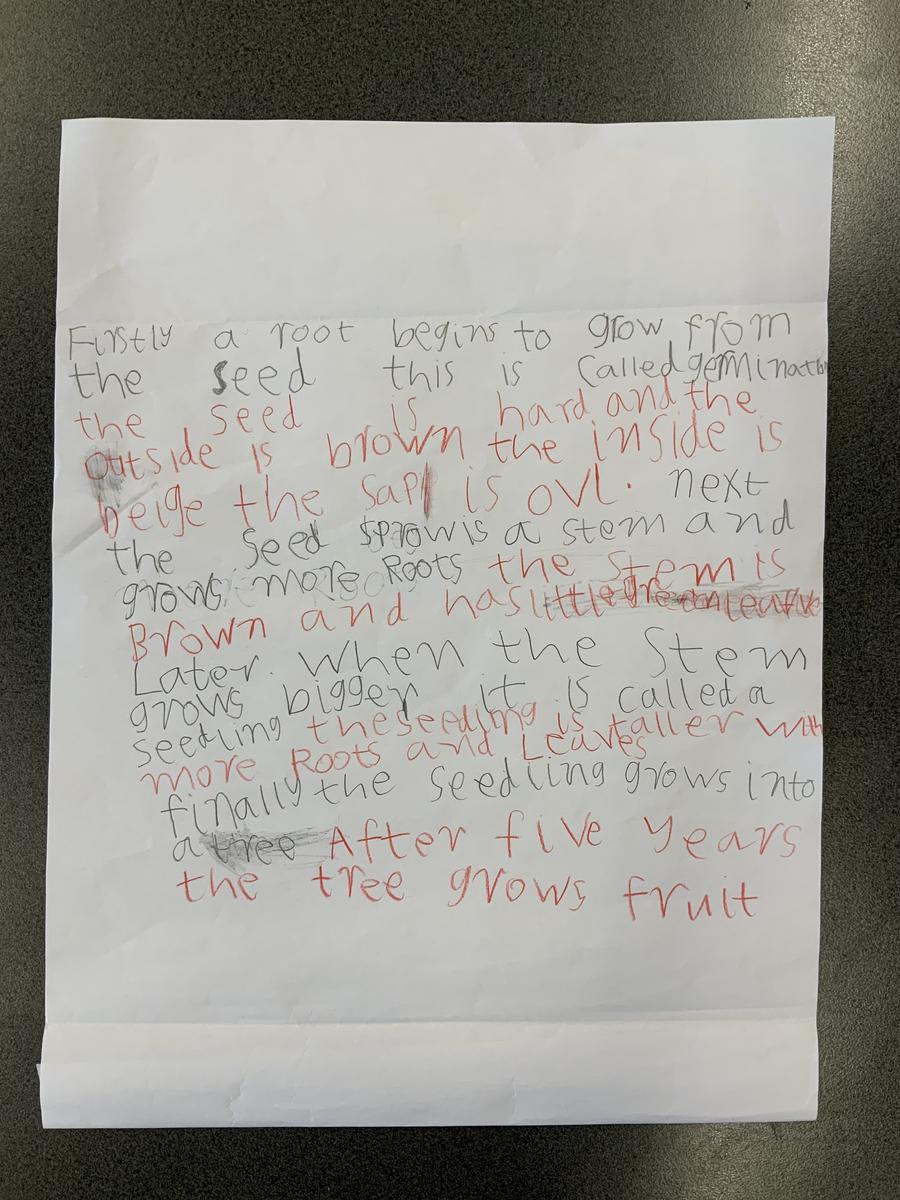 Firstly a root begins to grow from
the seed this is called germination
the seed is hard and the
outside is brown the inside is
beige the sap is ovl. next
the seed sprowis a stem and
grows more Roots the stem is
Brown and has little Green leaves
Later. when the Stem
grows bigger it is called a
seedling the seedling is taller with
more Roots and Leaves
finally the seedling grows into
a tree After five years
the tree grows fruit